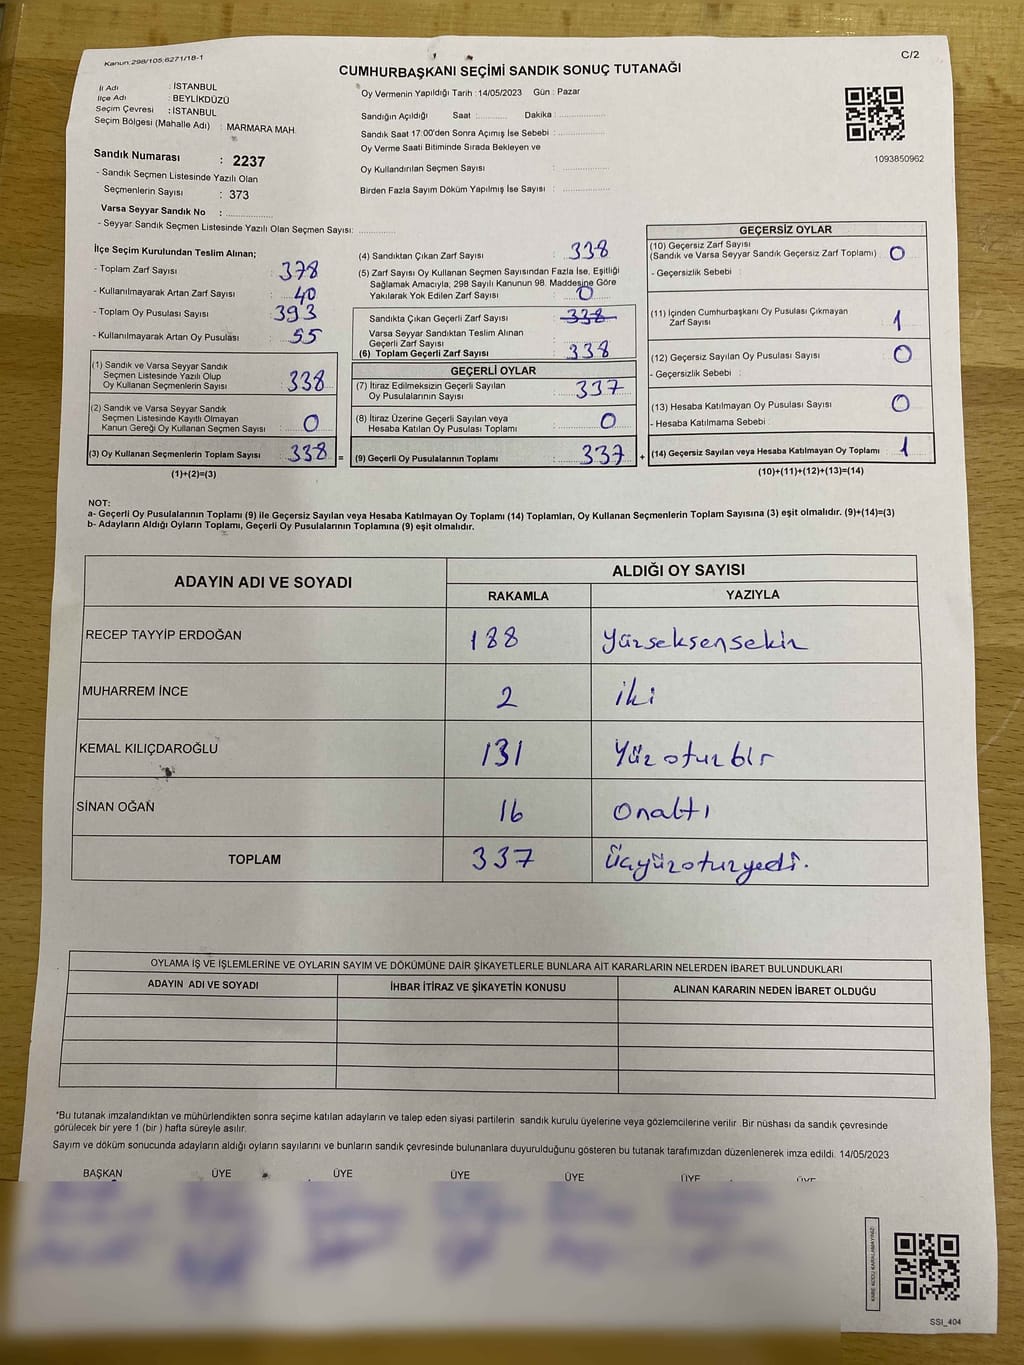 Kanun:298/105;6271/18-1
C/2
CUMHURBAŞKANI SEÇİMİ SANDIK SONUÇ TUTANAĞI
İl Adı : İSTANBUL
İlçe Adı : BEYLİKDÜZÜ
Seçim Çevresi : İSTANBUL
Seçim Bölgesi (Mahalle Adı) : MARMARA MAH.
Sandık Numarası : 2237
- Sandık Seçmen Listesinde Yazılı Olan
Seçmenlerin Sayısı : 373
Varsa Seyyar Sandık No : ................
- Seyyar Sandık Seçmen Listesinde Yazılı Olan Seçmen Sayısı: ............
Oy Vermenin Yapıldığı Tarih : 14/05/2023 Gün : Pazar
Sandığın Açıldığı Saat :.......... Dakika : ................
Sandık Saat 17.00'den Sonra Açımış İse Sebebi : ................
Oy Verme Saati Bitiminde Sırada Bekleyen ve
Oy Kullandırılan Seçmen Sayısı : ................
Birden Fazla Sayım Döküm Yapılmış İse Sayısı : ................
1093850962
İlçe Seçim Kurulundan Teslim Alınan;
- Toplam Zarf Sayısı : 378
- Kullanılmayarak Artan Zarf Sayısı : 40
- Toplam Oy Pusulası Sayısı : 393
- Kullanılmayarak Artan Oy Pusulası : 55
(1) Sandık ve Varsa Seyyar Sandık
Seçmen Listesinde Yazılı Olup
Oy Kullanan Seçmenlerin Sayısı : 338
(2) Sandık ve Varsa Seyyar Sandık
Seçmen Listesinde Kayıtlı Olmayan
Kanun Gereği Oy Kullanan Seçmen Sayısı : 0
(3) Oy Kullanan Seçmenlerin Toplam Sayısı : 338
(1)+(2)=(3)
(4) Sandıktan Çıkan Zarf Sayısı : 338
(5) Zarf Sayısı Oy Kullanan Seçmen Sayısından Fazla İse, Eşitliği
Sağlamak Amacıyla, 298 Sayılı Kanunun 98. Maddesine Göre
Yakılarak Yok Edilen Zarf Sayısı : 0
Sandıkta Çıkan Geçerli Zarf Sayısı : 338
Varsa Seyyar Sandıktan Teslim Alınan
Geçerli Zarf Sayısı :
(6) Toplam Geçerli Zarf Sayısı : 338
GEÇERLİ OYLAR
(7) İtiraz Edilmeksizin Geçerli Sayılan
Oy Pusulalarının Sayısı : 337
(8) İtiraz Üzerine Geçerli Sayılan veya
Hesaba Katılan Oy Pusulası Toplamı : 0
= (9) Geçerli Oy Pusulalarının Toplamı : 337 +
GEÇERSİZ OYLAR
(10) Geçersiz Zarf Sayısı
(Sandık ve Varsa Seyyar Sandık Geçersiz Zarf Toplamı) : 0
- Geçersizlik Sebebi :
(11) İçinden Cumhurbaşkanı Oy Pusulası Çıkmayan
Zarf Sayısı : 1
(12) Geçersiz Sayılan Oy Pusulası Sayısı : 0
- Geçersizlik Sebebi :
(13) Hesaba Katılmayan Oy Pusulası Sayısı : 0
- Hesaba Katılmama Sebebi :
(14) Geçersiz Sayılan veya Hesaba Katılmayan Oy Toplamı : 1
(10)+(11)+(12)+(13)=(14)
NOT:
a- Geçerli Oy Pusulalarının Toplamı (9) ile Geçersiz Sayılan veya Hesaba Katılmayan Oy Toplamı (14) Toplamları, Oy Kullanan Seçmenlerin Toplam Sayısına (3) eşit olmalıdır. (9)+(14)=(3)
b- Adayların Aldığı Oyların Toplamı, Geçerli Oy Pusulalarının Toplamına (9) eşit olmalıdır.
ADAYIN ADI VE SOYADI ALDIĞI OY SAYISI
RAKAMLA YAZIYLA
RECEP TAYYİP ERDOĞAN 188 Yüzseksensekiz
MUHARREM İNCE 2 iki
KEMAL KILIÇDAROĞLU 131 Yüz otuz bir
SİNAN OĞAN 16 onaltı
TOPLAM 337 Üçyüzotuzyedi.
OYLAMA İŞ VE İŞLEMLERİNE VE OYLARIN SAYIM VE DÖKÜMÜNE DAİR ŞİKAYETLERLE BUNLARA AİT KARARLARIN NELERDEN İBARET BULUNDUKLARI
ADAYIN ADI VE SOYADI İHBAR İTİRAZ VE ŞİKAYETİN KONUSU ALINAN KARARIN NEDEN İBARET OLDUĞU
*Bu tutanak imzalandıktan ve mühürlendikten sonra seçime katılan adayların ve talep eden siyasi partilerin sandık kurulu üyelerine veya gözlemcilerine verilir. Bir nüshası da sandık çevresinde
görülecek bir yere 1 (bir ) hafta süreyle asılır.
Sayım ve döküm sonucunda adayların aldığı oyların sayılarını ve bunların sandık çevresinde bulunanlara duyurulduğunu gösteren bu tutanak tarafımızdan düzenlenerek imza edildi. 14/05/2023
BAŞKAN ÜYE ÜYE ÜYE ÜYE ÜYE ÜYE
SSI_404